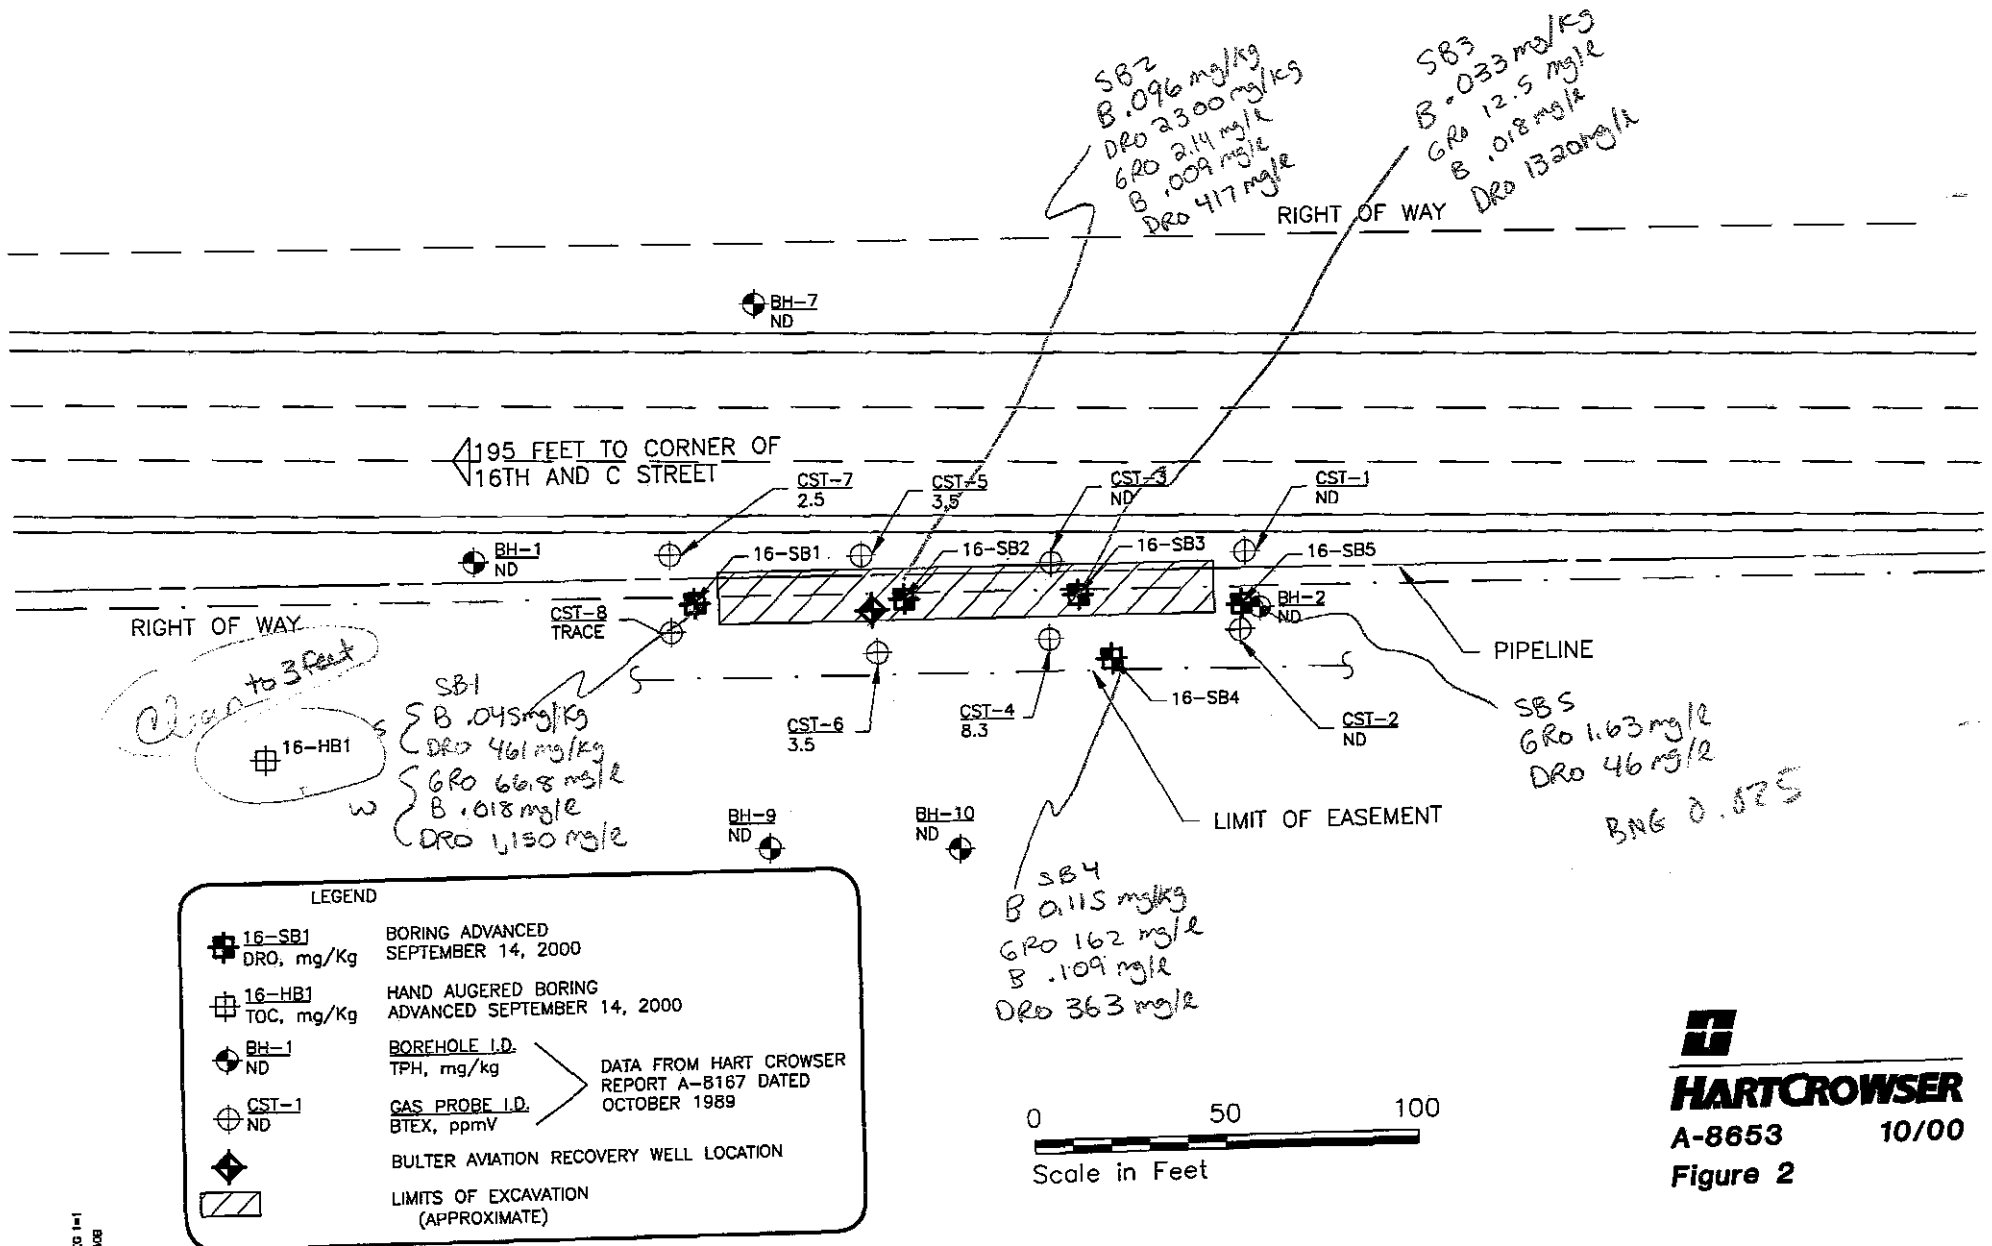 SB2
B .096 mg/kg
DRO 2300 mg/kg
GRO 2.14 mg/l
B .009 mg/l
DRO 417 mg/l
SB3
B .033 mg/kg
GRO 12.5 mg/l
B .018 mg/l
DRO 1320 mg/l
RIGHT OF WAY
BH-7
ND
195 FEET TO CORNER OF
16TH AND C STREET
CST-7
2.5
CST-5
3.5
CST-3
ND
CST-1
ND
BH-1
ND
16-SB1
16-SB2
16-SB3
16-SB5
BH-2
ND
CST-8
TRACE
RIGHT OF WAY
PIPELINE
Clean to 3 feet
16-HB1
SB1
S B .045 mg/kg
DRO 461 mg/kg
W GRO 66.8 mg/l
B .018 mg/l
DRO 1,150 mg/l
CST-6
3.5
CST-4
8.3
16-SB4
CST-2
ND
SB5
GRO 1.63 mg/l
DRO 46 mg/l
LIMIT OF EASEMENT
BH-9
ND
BH-10
ND
SB4
B 0.115 mg/kg
GRO 162 mg/l
B .109 mg/l
DRO 363 mg/l
LEGEND
16-SB1
DRO, mg/Kg
BORING ADVANCED
SEPTEMBER 14, 2000
16-HB1
TOC, mg/Kg
HAND AUGERED BORING
ADVANCED SEPTEMBER 14, 2000
BH-1
ND
BOREHOLE I.D.
TPH, mg/kg
CST-1
ND
GAS PROBE I.D.
BTEX, ppmV
DATA FROM HART CROWSER
REPORT A-8167 DATED
OCTOBER 1989
BULTER AVIATION RECOVERY WELL LOCATION
LIMITS OF EXCAVATION
(APPROXIMATE)
0 50 100
Scale in Feet
HARTCROWSER
A-8653 10/00
Figure 2